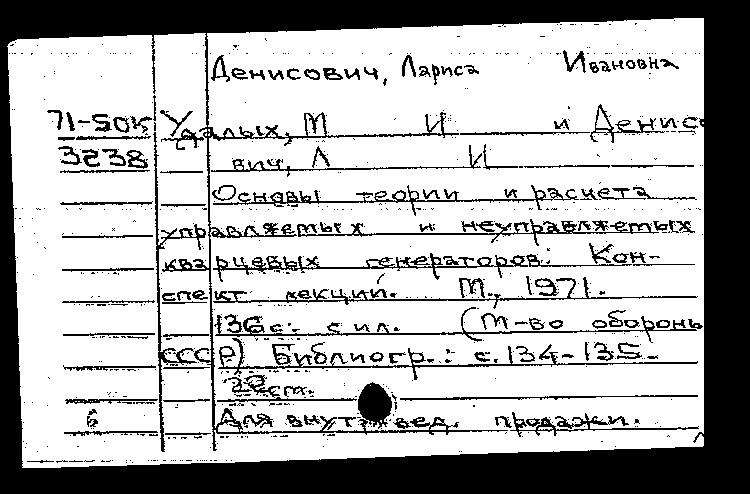 Денисович, Лариса Ивановна
71-5ок Удалых, М И и Денисо
3238 вич, Л И
Основы теории и расчета
управляемых и неуправляемых
кварцевых генераторов. Кон-
спект лекций. М., 1971.
136с. с ил. (М-во обороны
СССР) Библиогр.: с. 134-135.
22см.
6 Для внутр. вед. продажи.